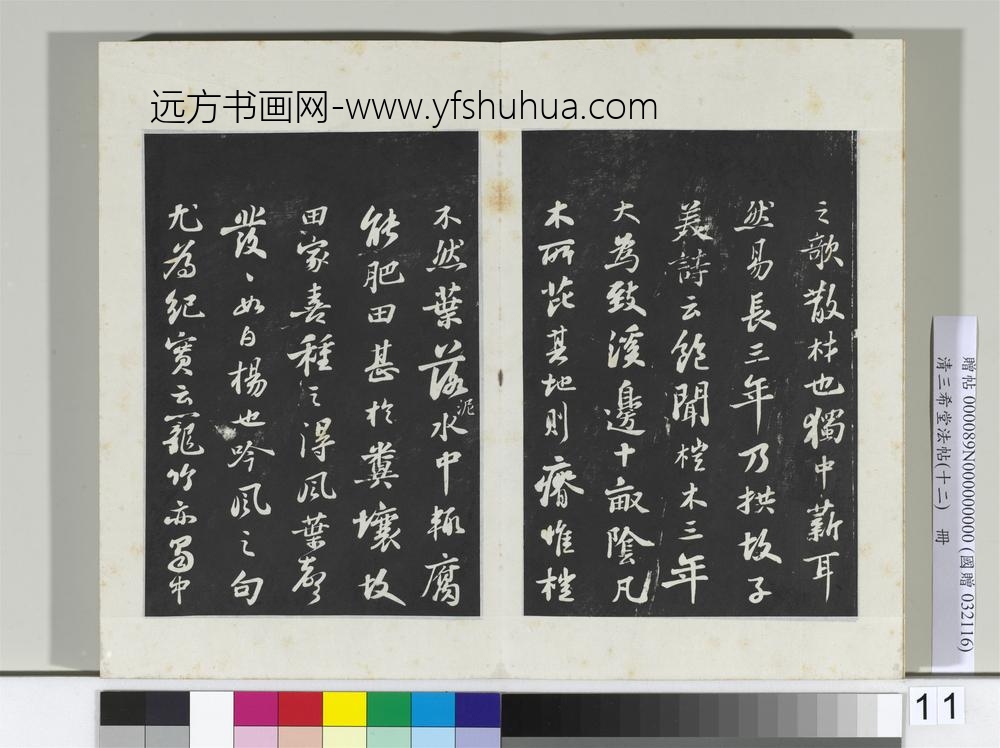 远方书画网-www.yfshuhua.com
之歌散材也獨中薪耳
然易長三年乃拱故子
美詩云飽聞榿木三年
大為致溪邊十畝陰凡
木所芘其地則瘠惟榿
不然葉落泥水中輒腐
能肥田甚於糞壤故
田家喜種之得風葉聲
發〻如白楊也吟風之句
尤為紀實云籠竹亦蜀中
贈帖 000089N000000000 (國贈 032116)
清三希堂法帖(十二) 冊
11